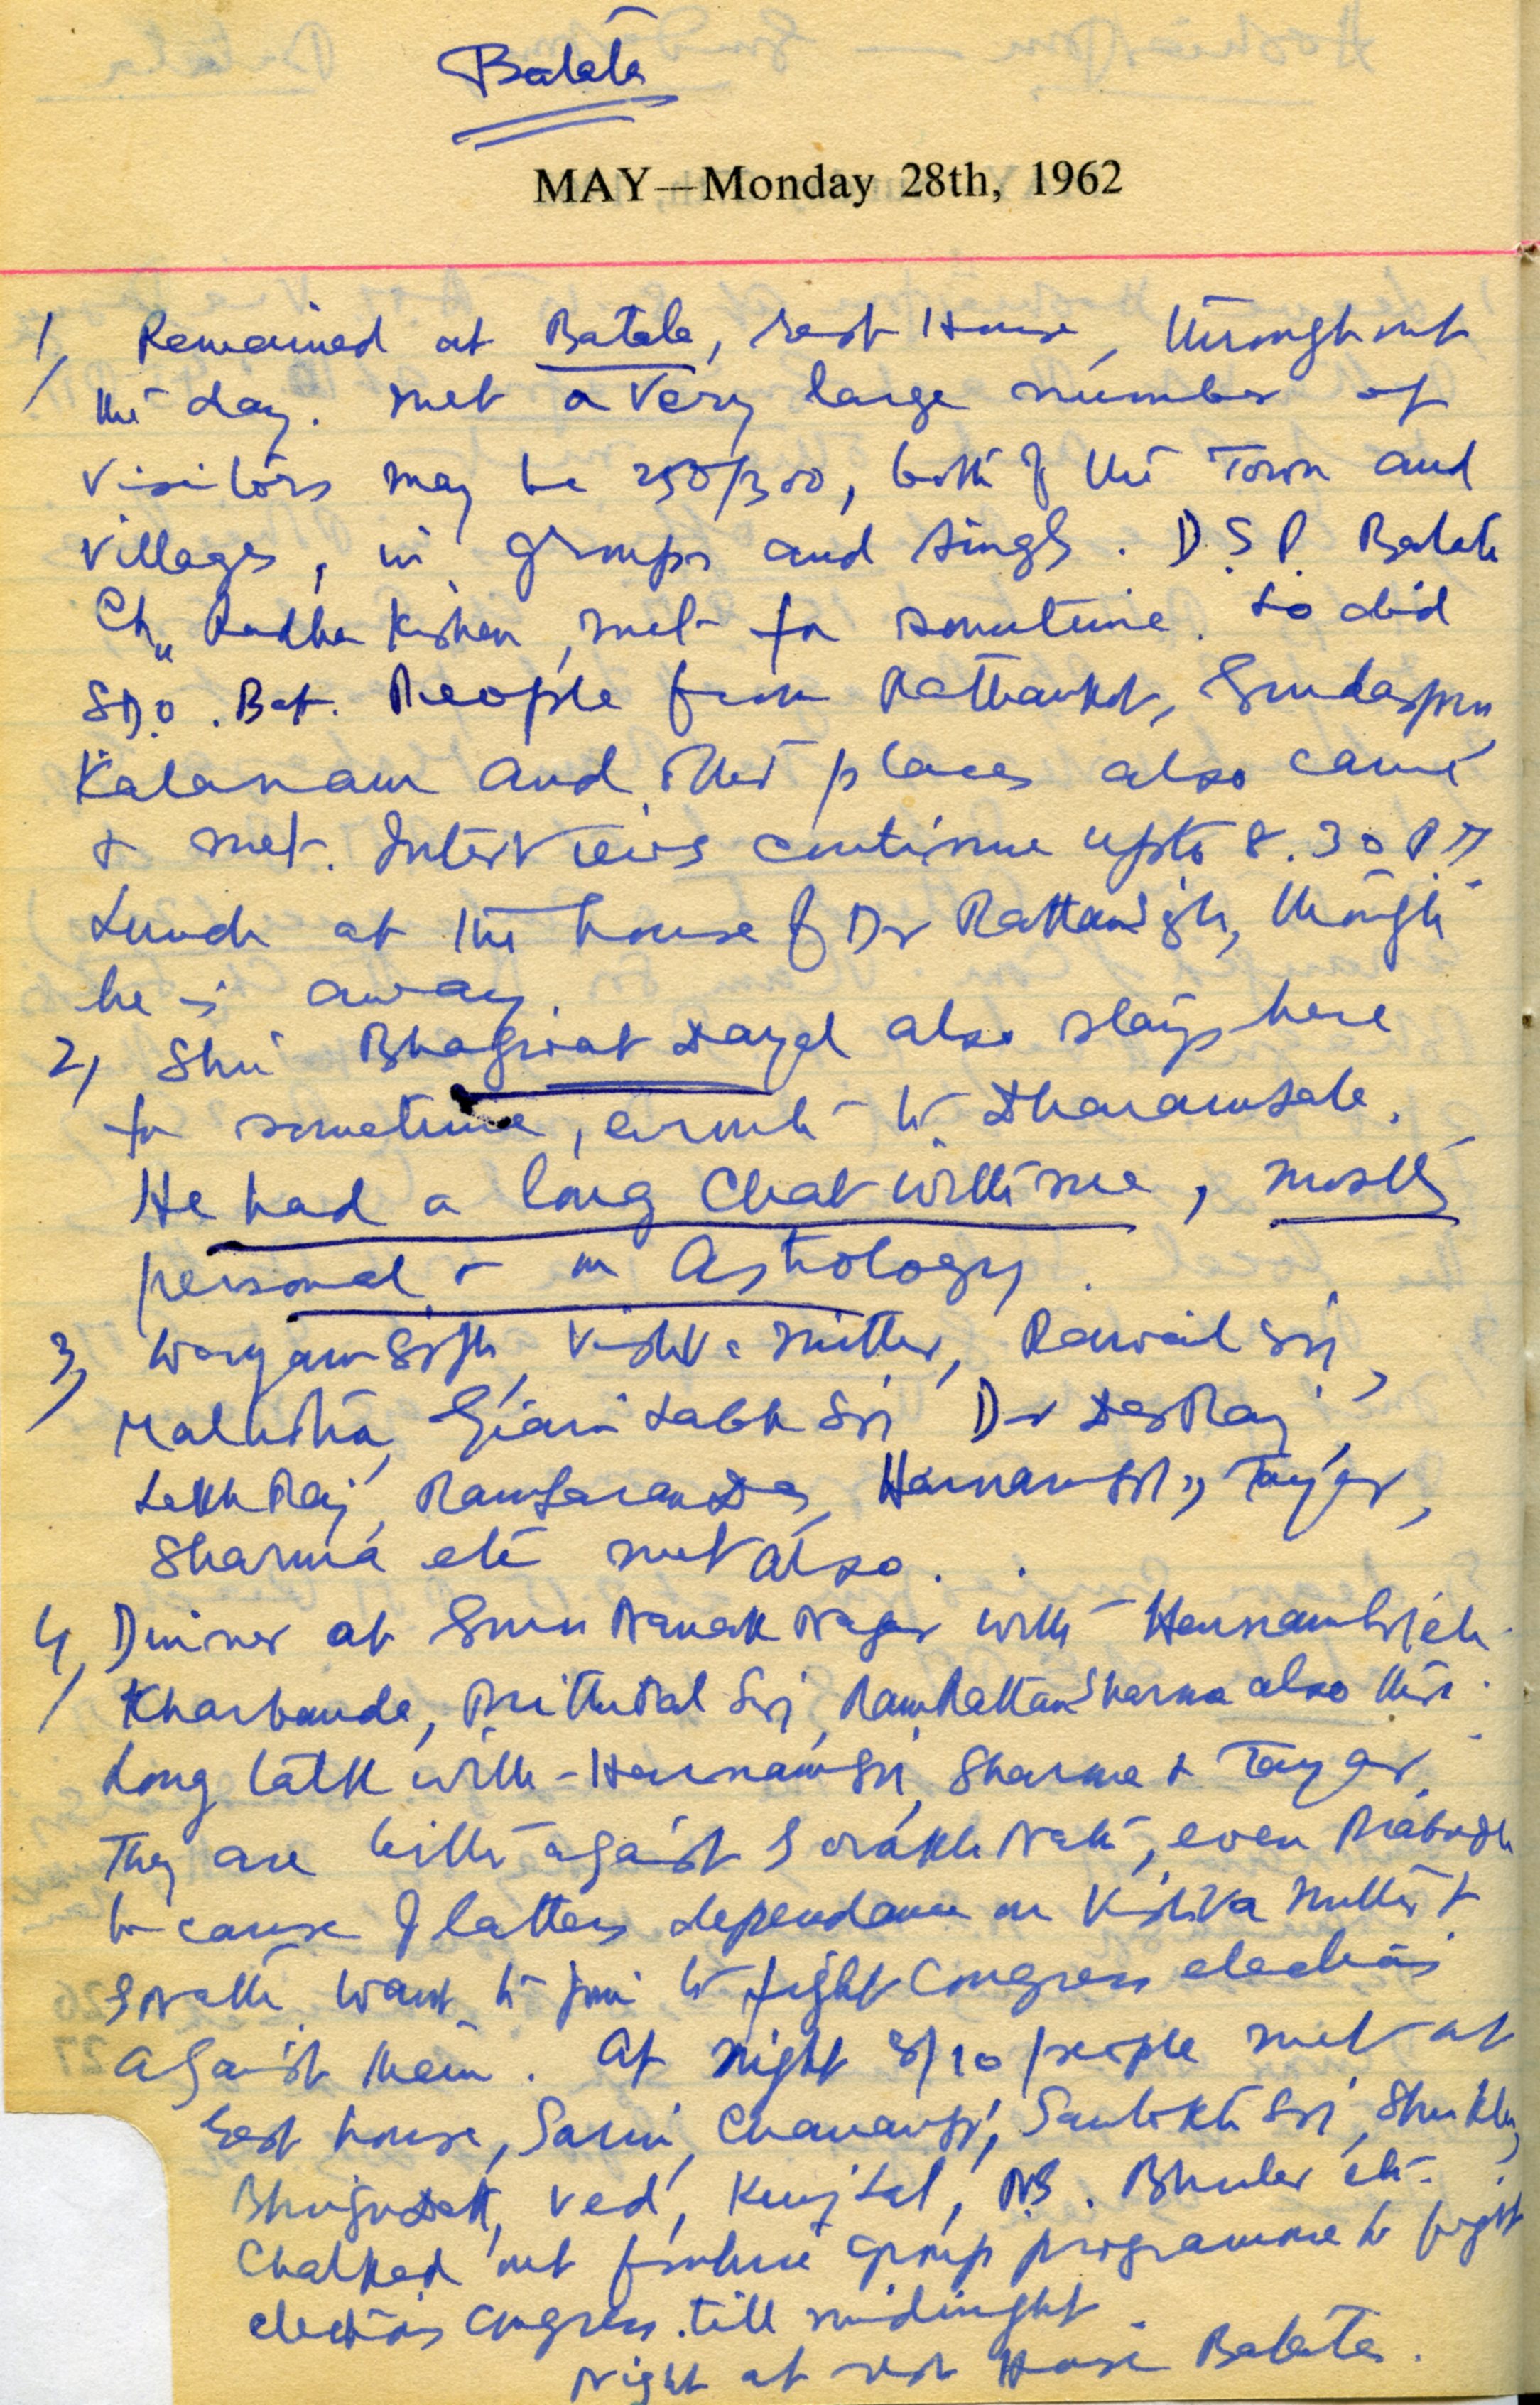 Batala
MAY—Monday 28th, 1962
1, Remained at Batala, rest House, throughout
the day. met a very large number of
visitors may be 250/300, both of the Town and
villages, in groups and singly. D.S.P. Batala
Ch,, Radha Kishen, met for sometime. So did
SDO. Bat. People from Pathankot, Gurdaspur,
Kalanaur and other places also came
& met. Interviews continue upto 8.30 P.M.
Lunch at the house of Dr Rattan Singh, though
he is away.
2, Shri Bhagwat Dayal also stays here
for sometime, enroute to Dharamsala.
He had a long chat with me, mostly
personal & on Astrology.
3, Waryam Singh, Vishva Mitter,
Malhotra, Giani Labh Sgj Dr Des Raj,
Lekh Raj, Ramsaran Das, Harnam Tayar,
Sharma etc met also.
4, Dinner at Guru Nanak Nagar with Harnam Singh
Kharbanda, Prithipal Sgj, Ram Rattan Sharma also there.
Long talk with Harnam Sgj, Sharma & Tayar.
They are bitter against Gorakh Nath, even Prabodh
because of latters dependance on Vishva Mitter &
GNath. Want to join to fight Congress elections
against them. At night 8/10 people met at
rest house, Sarin, Chanan Sgj, Santokh Sgj, Shukla,
Bhrigu Datt, Ved, Kunj Lal, etc.
Chalked out future group programme to fight
elections Congress. till midnight.
Night at rest House Batala.